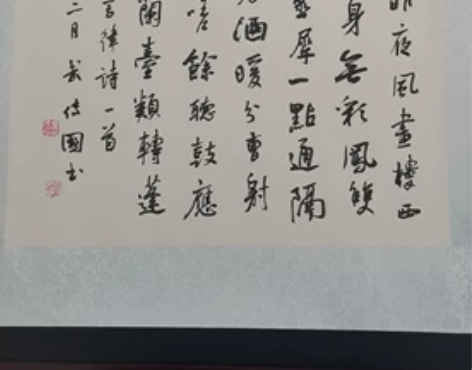 昨夜風畫樓西
身無彩鳳雙
靈犀一點通隔
酒暖分曹射
嗟餘聽鼓應
蘭臺類轉蓬
言律詩一首
二月國书